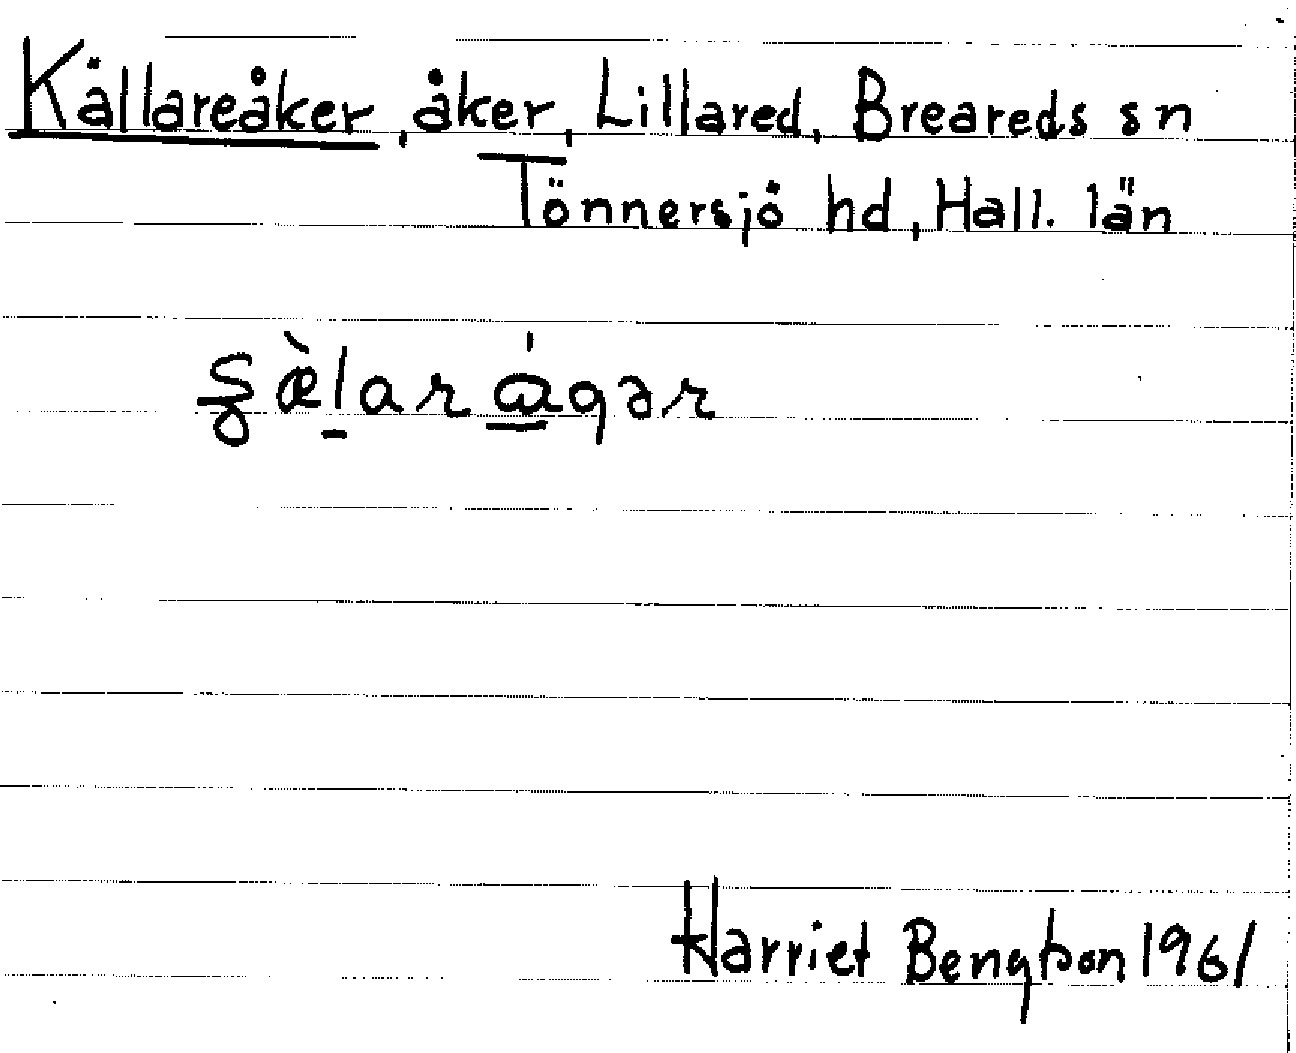 Källareåker, åker, Lillared, Breareds sn
Tönnersjö hd, Hall. län
Harriet Bengtson 1961